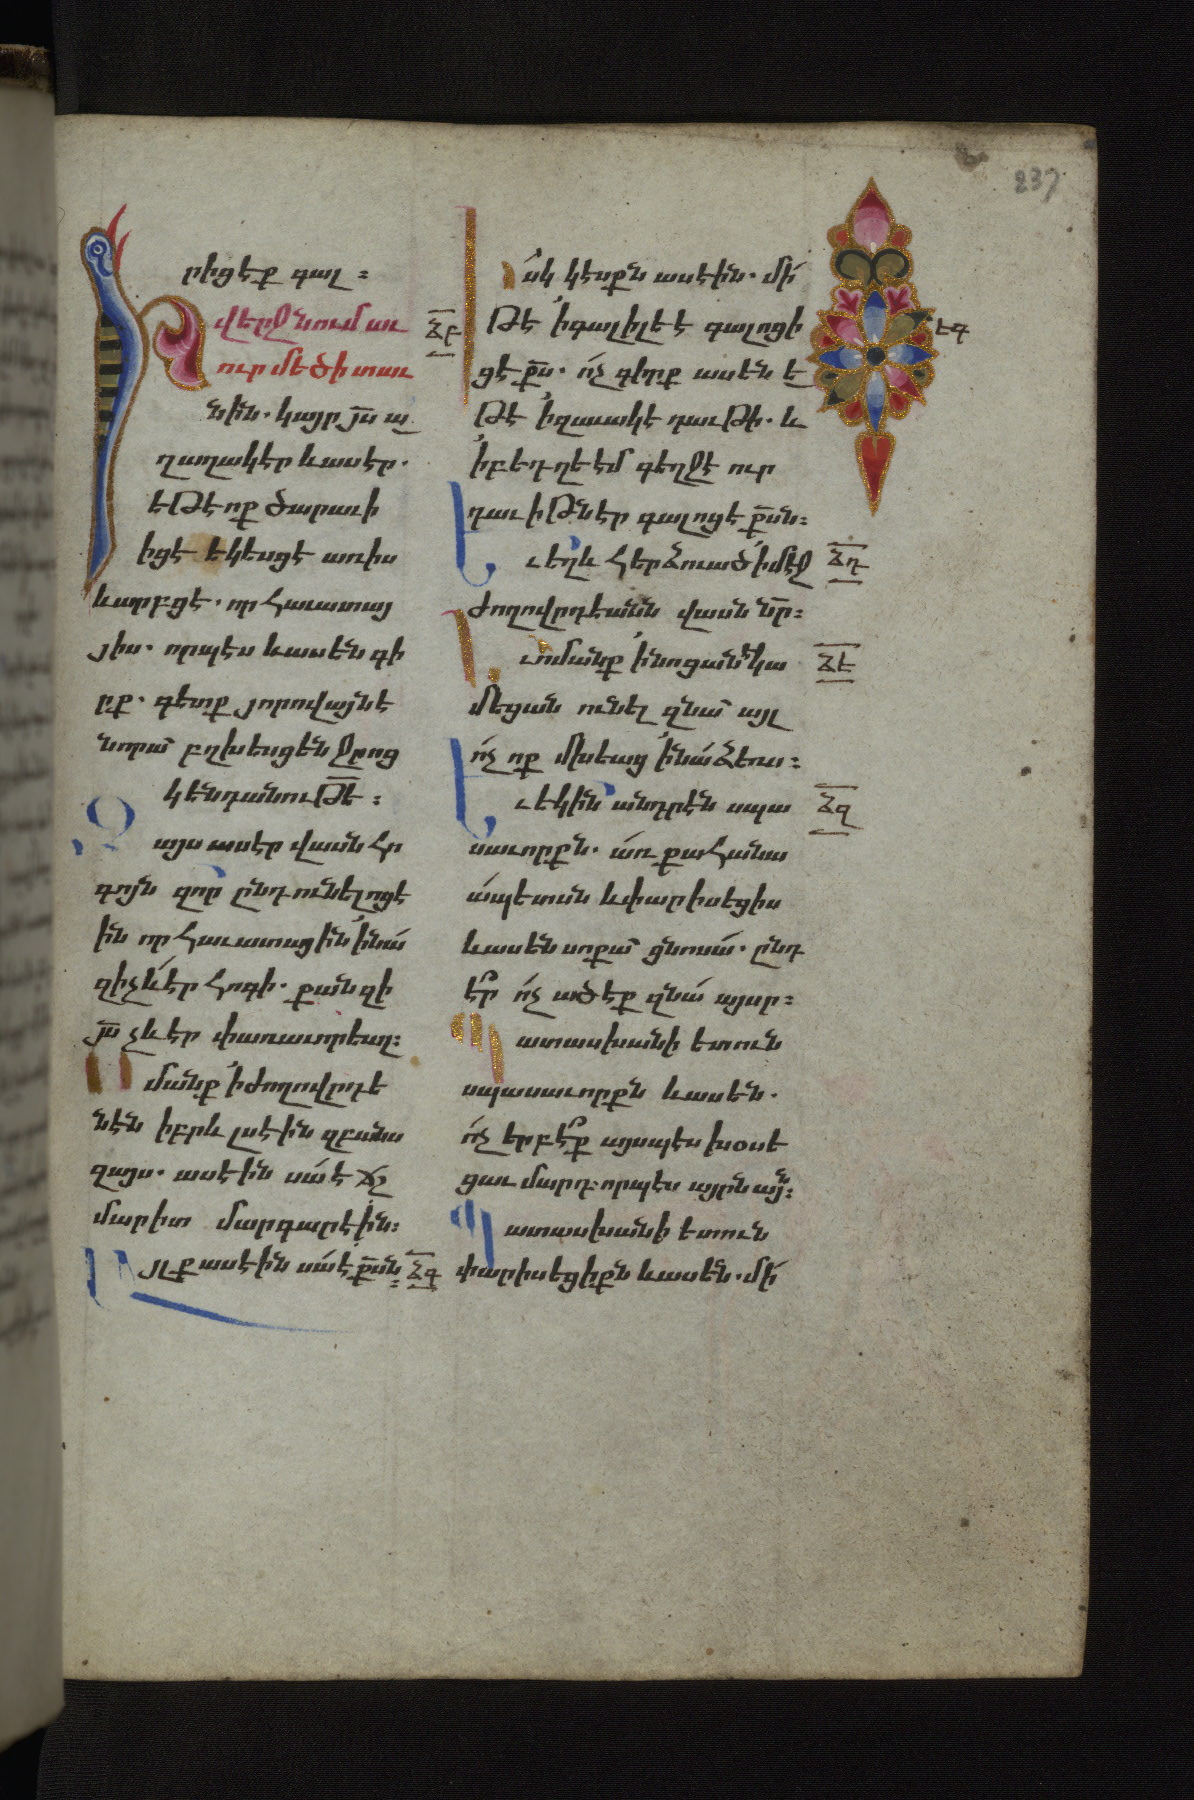 237
րիցէք գալ։
Ի վերջնում աւ
ուր մեծի տաւ
նին. կայր յս ա
ղաղակէր և ասէր.
եթէ ոք ծարաւի
իցէ եկեսցէ առիս
և արբցէ. որ հաւատայ
յիս. որպէս և ասեն գի
րք. գետք յորովայնէ
նորա բղխեսցեն ջրոց
կենդանութե։
Զայս ասէր վասն հո
գոյն զոր ընդունելոցէ
ին որ հաւատացին ՛ինա
զի չև էր հոգի. քանզի
յս չև էր փառաւորեալ։
Ոմանք ՛ի ժողովրդե
նէն իբրև լսէին զբանս
զայս. ասէին սա է ճշ
մարիտ մարգարէին։
Այլք ասէին սա է քսն։
ճբ
ճգ
Իսկ կէսքն ասէին. մի
թէ ՛ի գալիլեէ գալոցի
ցէ քս. ոչ գիրք ասեն ե
թէ ՛ի զաւակէ դաւթի. և
՛ի բեդղեէմ գեղջէ ուր
դաւիթն էր գալոցէ քսն։
Եւ եղև հերձուած ՛ի մէջ
ժողովրդեանն վասն նր։
Եւ ոմանք ՛ի նոցանէ կա
մեցան ունել զնա այլ
ոչ ոք մխեաց ՛ի նա ձեռս։
Եւ եկին անդրէն սպա
սաւորքն. առ քահանա
ապետսն և փարիսեցիս
և ասեն սոքա ցնոսա. ընդ
էր ոչ ածէք զնա այսր։
Պատասխանի ետուն
սպասաւորքն և ասեն.
ոչ երբէք այսպէս խօսե
ցաւ մարդ. որպէս այրն այն։
Պատասխանի ետուն
փարիսեցիքն և ասեն. մի
եգ
ճդ
ճե
ճզ